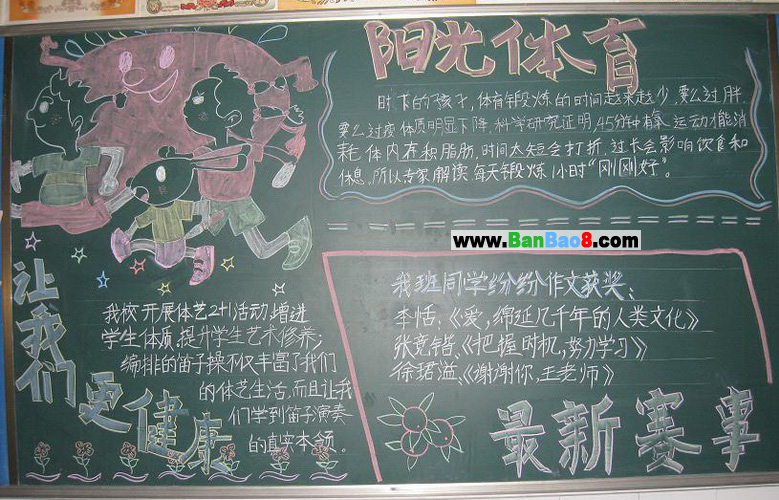 阳光体育
时下的孩子,体育锻炼的时间越来越少,要么过胖,
要么过瘦,体质明显下降,科学研究证明,45分钟左右运动才能消
耗体内存积脂肪,时间太短会打折,过长会影响饮食和
休息,所以专家解读每天锻炼1小时“刚刚好”。
www.BanBao8.com
让我们更健康
我校开展体艺2+1活动,增进
学生体质,提升学生艺术修养;
编排的笛子操不仅丰富了我们
的体艺生活,而且让我
们学到笛子演奏
的真实本领。
我班同学纷纷作文获奖:
李恬:《爱,绵延几千年的人类文化》
张竞锴:《把握时机,努力学习》
徐珺溢:《谢谢你,王老师》
最新赛事